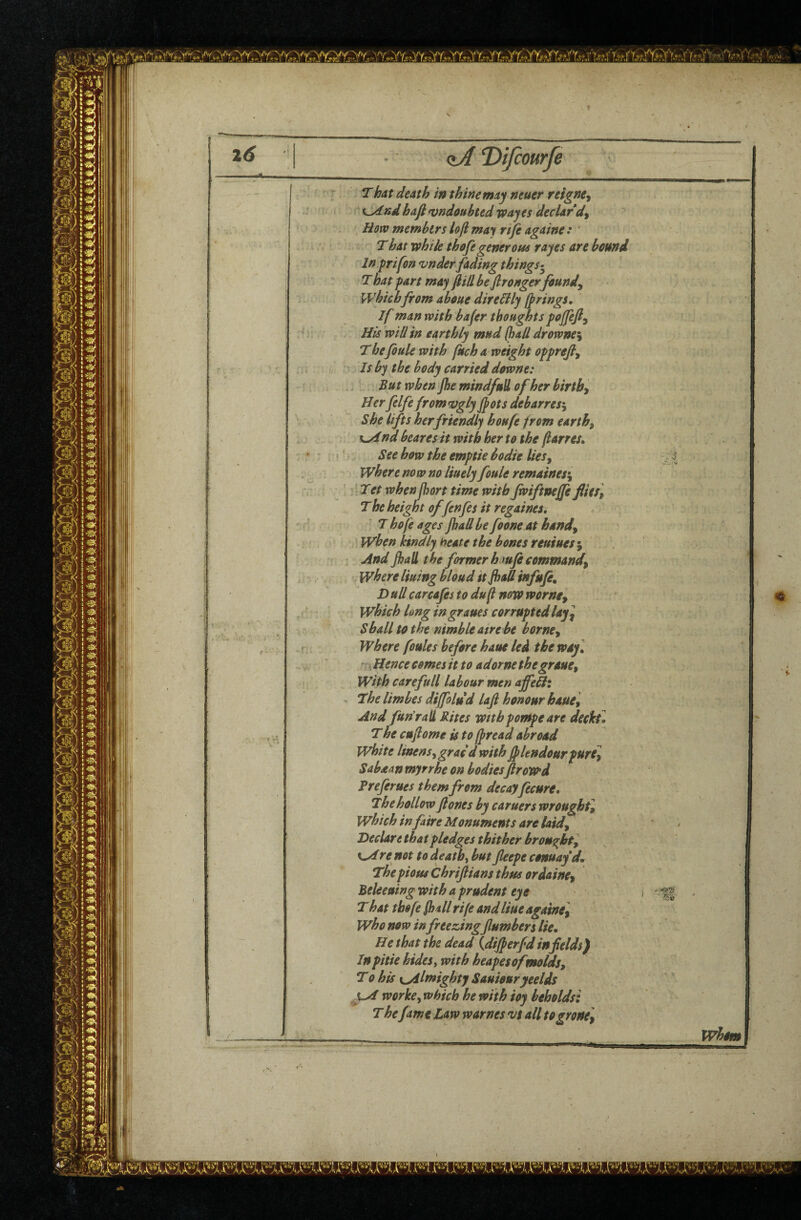 26
A Discourse
That death in thine may neuer reigne,
And hast vndoubted wayes declar'd,
How members lost may rise againe:
That while those generous rayes are bound
In prison vnder fading things;
That part may still be stronger found,
Which from aboue directly springs.
If man with baser thoughts possest,
His will in earthly mud shall drowne;
The soule with such a weight opprest,
Is by the body carried downe:
But when she mindfull of her birth,
Her selfe from vgly spots debarres;
She lifts her friendly house from earth,
And beares it with her to the starres.
See how the emptie bodie lies,
Where now no liuely soule remaines;
Yet when short time with swiftnesse flies,
The height of senses it regaines.
Those ages shall be soone at hand,
When kindly heate the bones reuiues;
And shall the former house command,
Where liuing bloud it shall infuse.
Dull carcases to dust now worne,
Which long in graues corrupted lay,
Shall to the nimble aire be borne,
Where soules before haue led the way.
Hence comes it to adorne the graue,
With carefull labour men affect:
The limbes dissolu'd last honour haue,
And fun'rall Rites with pompe are deckt.
The custome is to spread abroad
White linens, grac'd with splendour pure,
Sabæan myrrhe on bodies strow'd
Preserues them from decay secure.
The hollow stones by caruers wrought,
Which in faire Monuments are laid,
Declare that pledges thither brought,
Are not to death, but sleepe conuay'd.
The pious Christians thus ordaine,
Beleeuing with a prudent eye
That those shall rise and liue againe,
Who now in freezing slumbers lie.
He that the dead (dispers'd in fields)
In pitie hides, with heapes of molds,
To his Almighty Sauiour yeelds
A worke, which he with ioy beholds:
The same Law warnes vs all to grone,
Whom